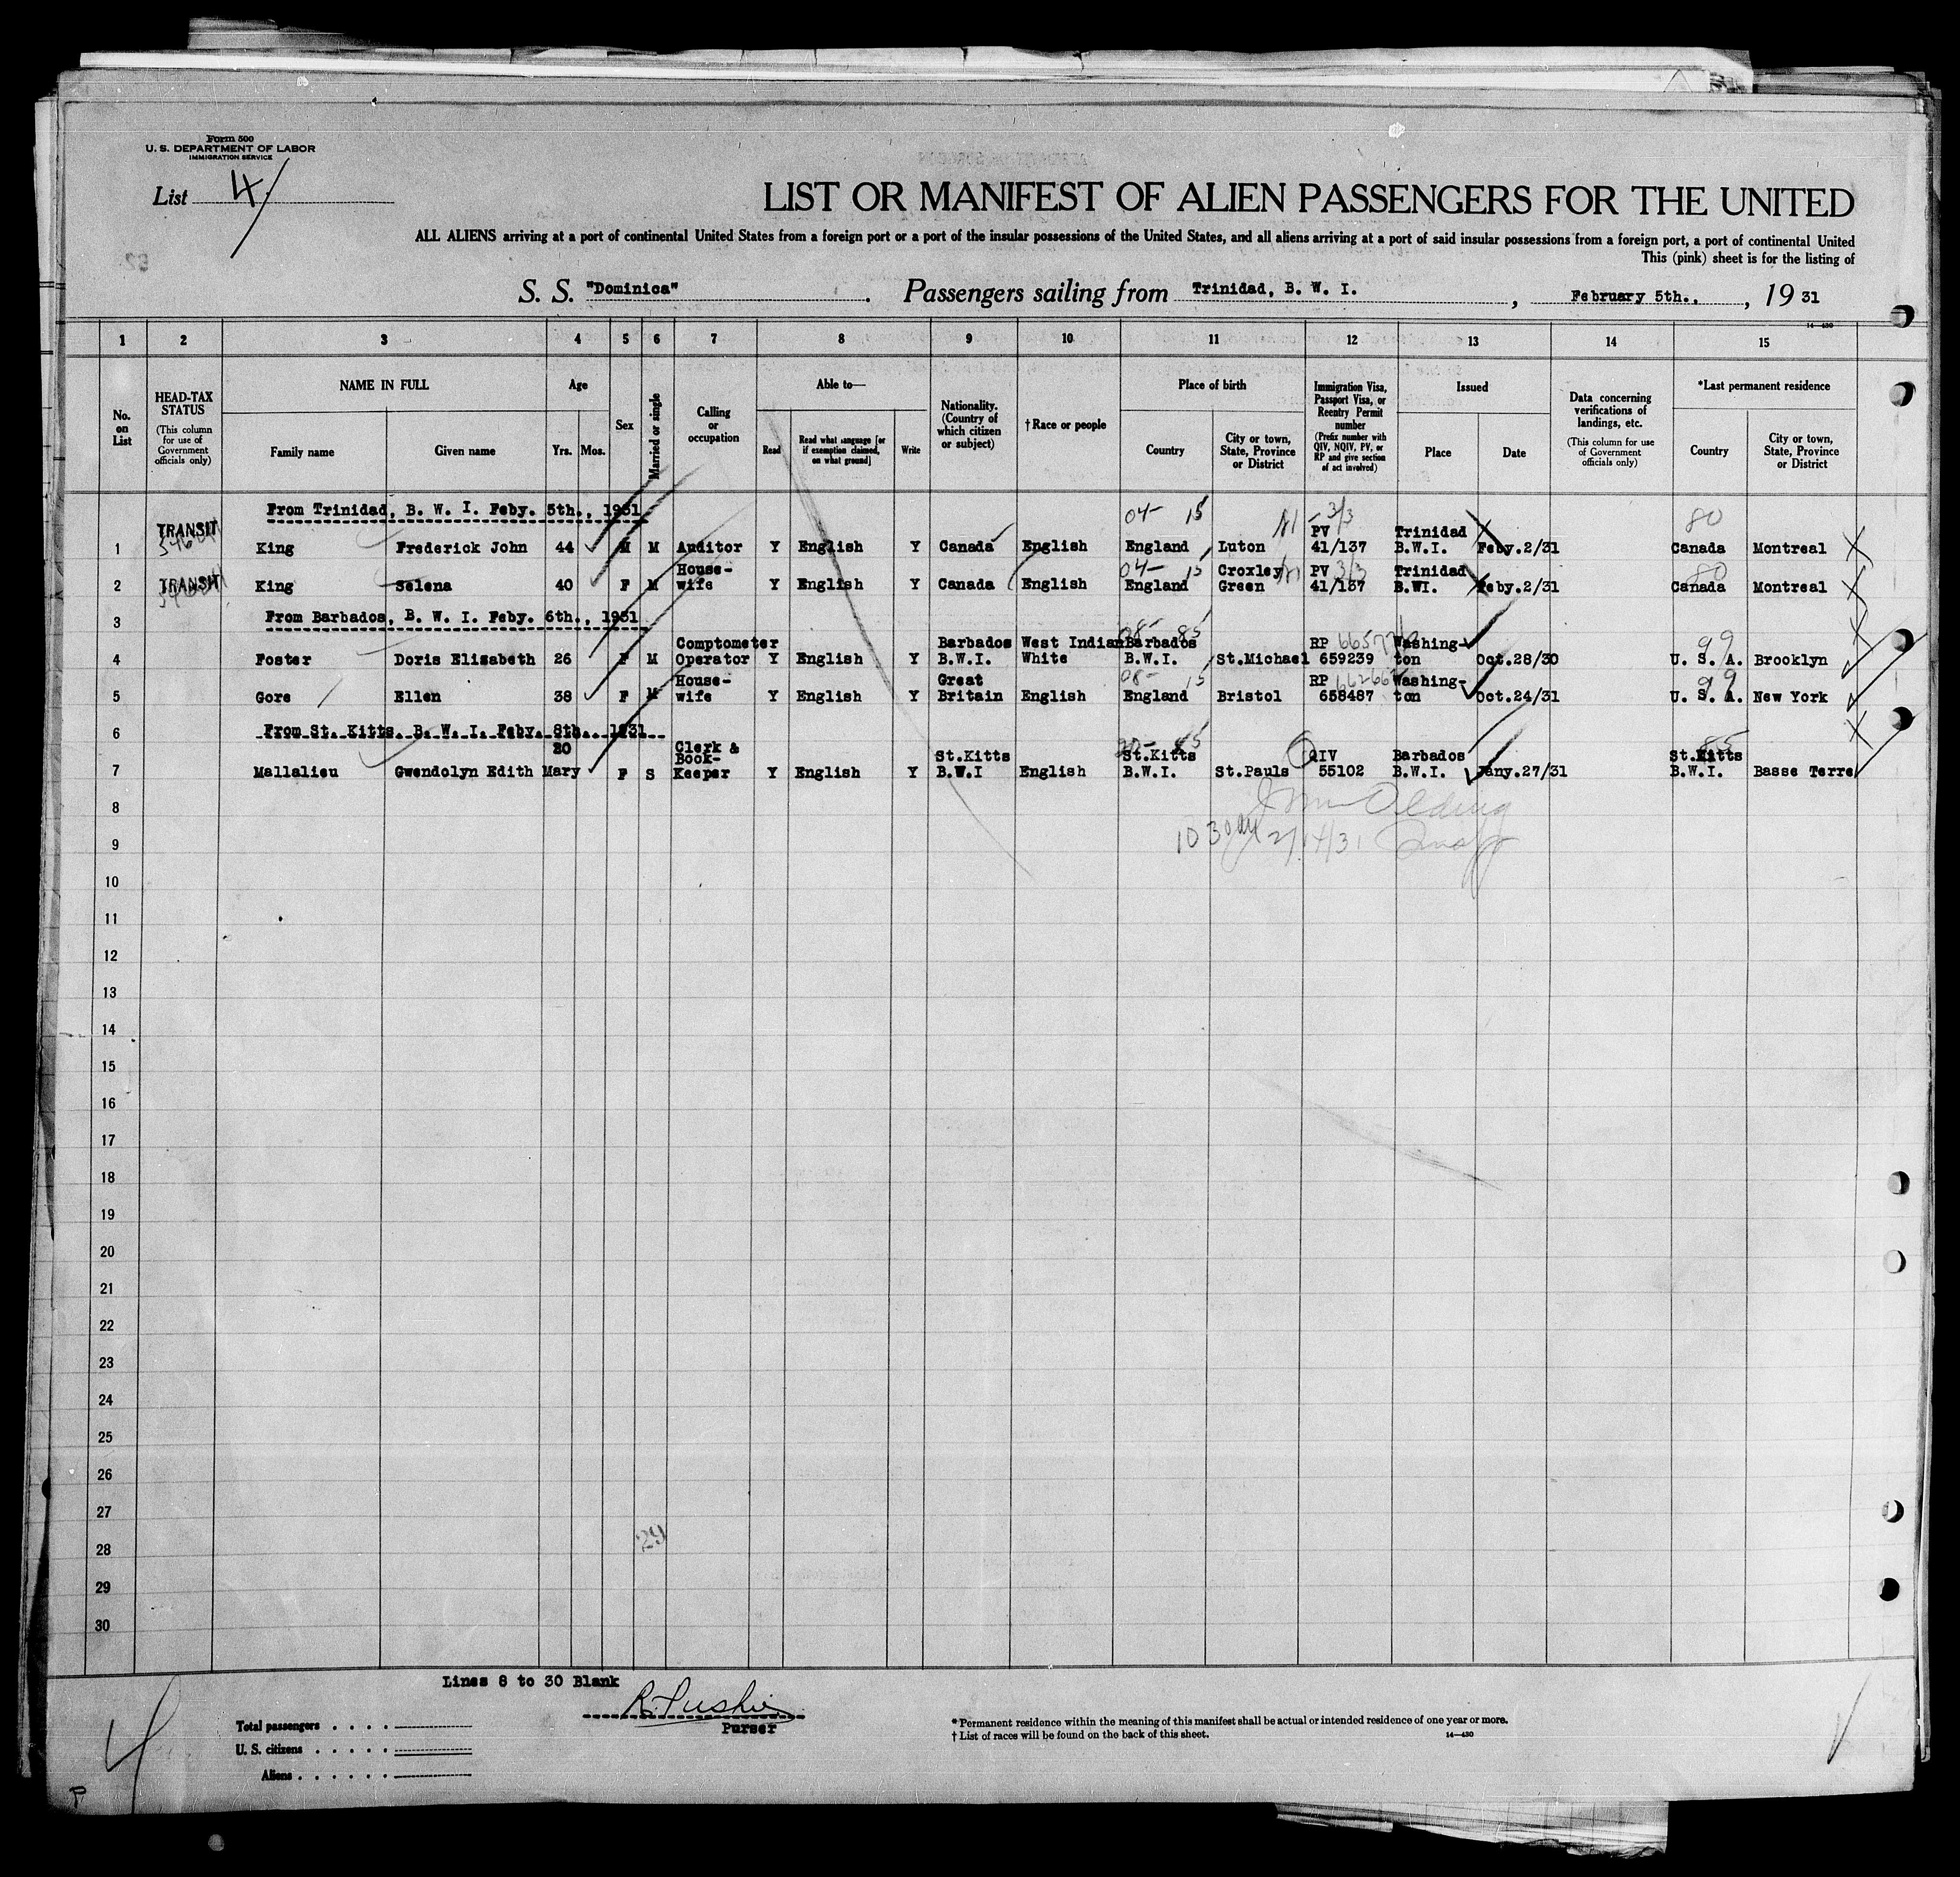 Form 500
U. S. DEPARTMENT OF LABOR
IMMIGRATION SERVICE
List 4
LIST OR MANIFEST OF ALIEN PASSENGERS FOR THE UNITED
ALL ALIENS arriving at a port of continental United States from a foreign port or a port of the insular possessions of the United States, and all aliens arriving at a port of said insular possessions from a foreign port, a port of continental United
This (pink) sheet is for the listing of
S. S. "Dominica". Passengers sailing from Trinidad, B. W. I. , February 5th., , 19 31
14—430
1 2 3 4 5 6 7 8 9 10 11 12 13 14 15
No. on List
HEAD-TAX STATUS (This column for use of Government officials only)
NAME IN FULL
Family name Given name
Age
Yrs. Mos.
Sex
Married or single
Calling or occupation
Able to—
Read
Read what language [or if exemption claimed, on what ground]
Write
Nationality. (Country of which citizen or subject)
† Race or people
Place of birth
Country
City or town, State, Province or District
Immigration Visa, Passport Visa, or Reentry Permit number (Prefix number with QIV, NQIV, PV, or RP and give section of act involved)
Issued
Place Date
Data concerning verifications of landings, etc. (This column for use of Government officials only)
*Last permanent residence
Country
City or town, State, Province or District
From Trinidad, B. W. I. Feby. 5th., 1931
04- 15 3/3 80
TRANSIT PV Trinidad
1 King Frederick John 44 M M Auditor Y English Y Canada English England Luton 41/137 B.W.I. Feby.2/31 Canada Montreal
House- 04- 15 Croxley PV 3/3 Trinidad 80
2 TRANSIT King Selena 40 F M wife Y English Y Canada English England Green 41/137 B.WI. Feby.2/31 Canada Montreal
3 From Barbados, B. W. I. Feby. 6th., 1931
Comptometer Barbados West Indian Barbados 85 RP Washing- 99
4 Foster Doris Elizabeth 26 F M Operator Y English Y B.W.I. White B.W.I. St.Michael 659239 ton Oct.28/30 U. S. A. Brooklyn
House- Great 08- 15 RP Washing- 99
5 Gore Ellen 38 F M wife Y English Y Britain English England Bristol 658487 ton Oct.24/31 U. S. A. New York
6 From St. Kitts. B. W. I. Feby. 8th. 1931
20 Clerk & Book- St.Kitts St.Kitts 85 QIV Barbados St.Kitts 85
7 Mallalieu Gwendolyn Edith Mary F S Keeper Y English Y B.W.I English B.W.I. St.Pauls 55102 B.W.I. Jany.27/31 B.W.I. Basse Terre
8
9 10 30 am 2/14/31
10
11
12
13
14
15
16
17
18
19
20
21
22
23
24
25
26
27
28 29
29
30
Lines 8 to 30 Blank
Purser
4
Total passengers . . . .
U. S. citizens . . . . .
Aliens . . . . . .
* Permanent residence within the meaning of this manifest shall be actual or intended residence of one year or more.
† List of races will be found on the back of this sheet.
14—430
P